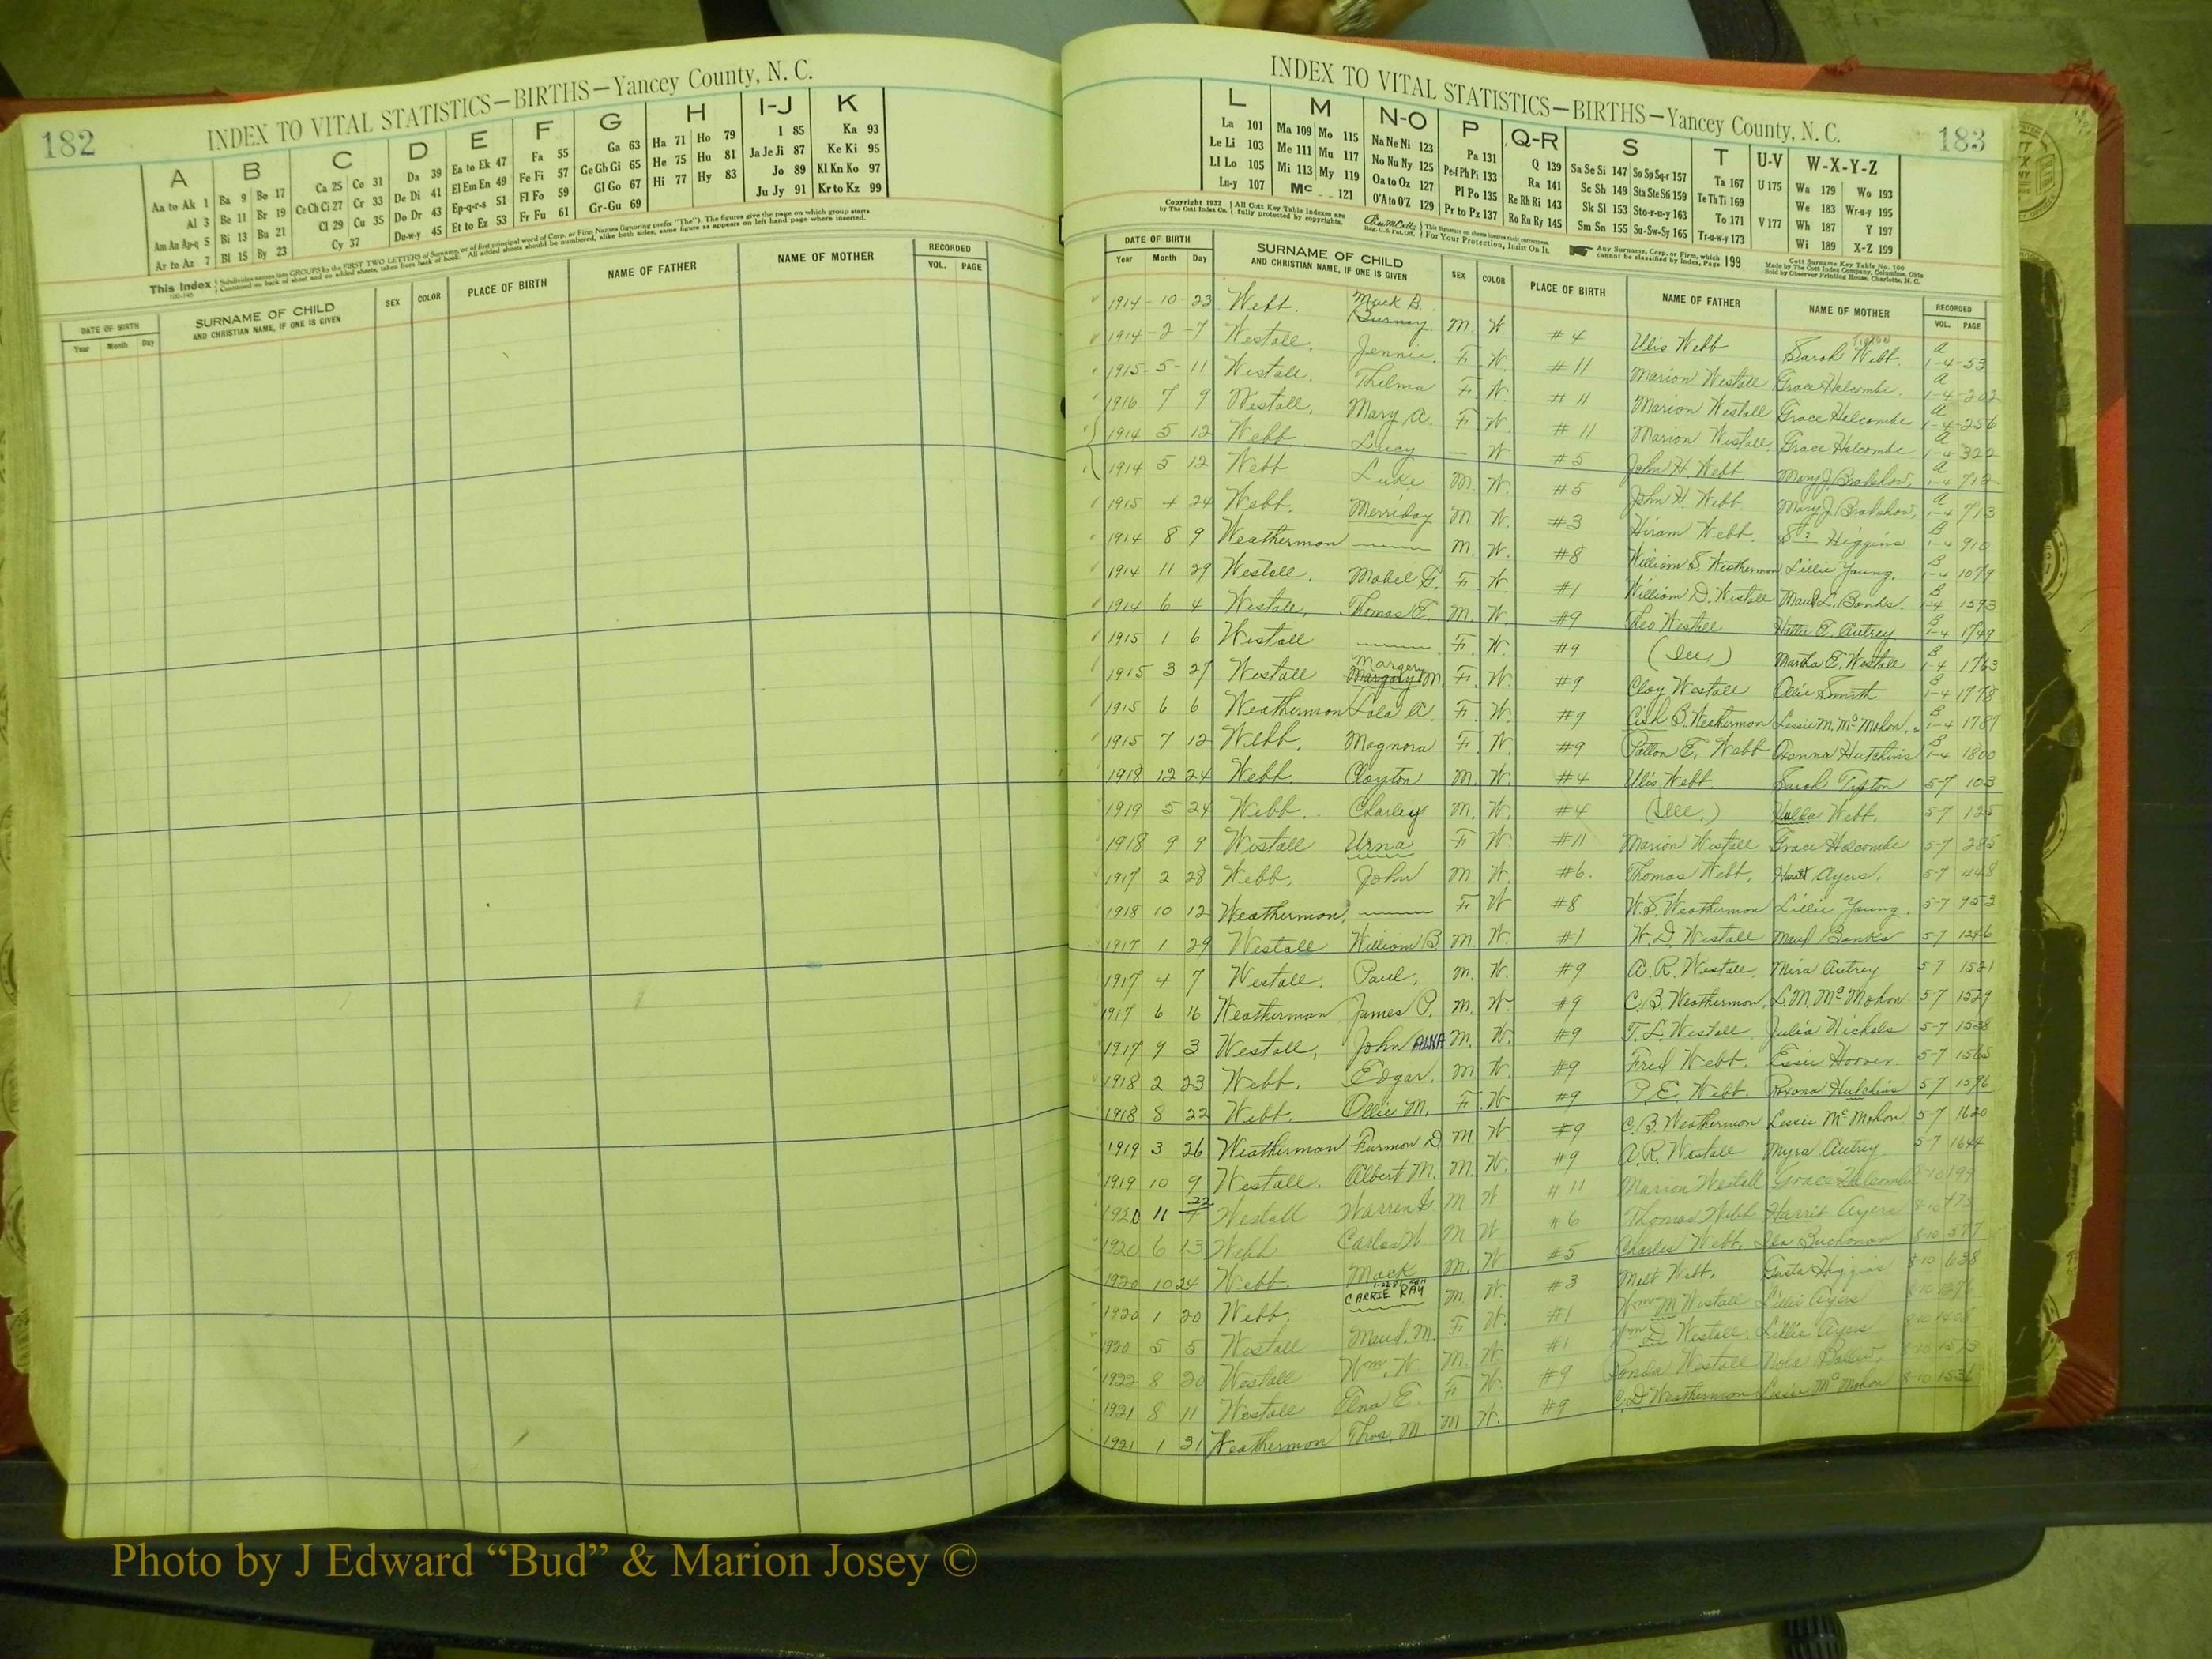 182
INDEX TO VITAL STATISTICS—BIRTHS—Yancey County, N. C.
A B C D E F G H I-J K
Aa to Ak 1 Ba 9 Bo 17 Ca 25 Co 31 Da 39 Ea to Ek 47 Fa 55 Ga 63 Ha 71 Ho 79 I 85 Ka 93
Al 3 Be 11 Br 19 Ce Ch Ci 27 Cr 33 De Di 41 El Em En 49 Fe Fi 57 Ge Gh Gi 65 He 75 Hu 81 Ja Je Ji 87 Ke Ki 95
Am An Ap-q 5 Bi 13 Bu 21 Cl 29 Cu 35 Do Dr 43 Ep-q-r-s 51 Fl Fo 59 Gl Go 67 Hi 77 Hy 83 Jo 89 Kl Kn Ko 97
Ar to Az 7 Bl 15 By 23 Cy 37 Du-w-y 45 Et to Ez 53 Fr Fu 61 Gr-Gu 69 Ju Jy 91 Kr to Kz 99
This Index
DATE OF BIRTH SURNAME OF CHILD SEX COLOR PLACE OF BIRTH NAME OF FATHER NAME OF MOTHER RECORDED
Year Month Day AND CHRISTIAN NAME, IF ONE IS GIVEN VOL. PAGE
INDEX TO VITAL STATISTICS—BIRTHS—Yancey County, N. C.
183
L M N-O P Q-R S T U-V W-X-Y-Z
La 101 Ma 109 Mo 115 Na Ne Ni 123 Pa 131 Q 139 Sa Se Si 147 So Sp Sq-r 157 Ta 167 U 175 Wa 179 Wo 193
Le Li 103 Me 111 Mu 117 No Nu Ny 125 Pe-f Ph Pi 133 Ra 141 Sc Sh 149 Sta Ste Sti 159 Te Th Ti 169 We 183 Wr-u-y 195
Ll Lo 105 Mi 113 My 119 Oa to Oz 127 Pl Po 135 Re Rh Ri 143 Sk Sl 153 Sto-r-u-y 163 To 171 V 177 Wh 187 Y 197
Lu-y 107 Mc 121 O'A to O'Z 129 Pr to Pz 137 Ro Ru Ry 145 Sm Sn 155 Su-Sw-Sy 165 Tr-u-w-y 173 Wi 189 X-Z 199
Copyright 1922 by The Cott Index Co. All Cott Key Table Indexes are fully protected by copyrights.
For Your Protection, Insist On It.
Any Surname, Corp. or Firm, which cannot be classified by Index, Page 199
Cott Surname Key Table No. 100
Made by The Cott Index Company, Columbus, Ohio
Sold by Observer Printing House, Charlotte, N. C.
DATE OF BIRTH SURNAME OF CHILD SEX COLOR PLACE OF BIRTH NAME OF FATHER NAME OF MOTHER RECORDED
Year Month Day AND CHRISTIAN NAME, IF ONE IS GIVEN VOL. PAGE
1914-10-23 Webb. Mack B. Burnay M W #4 Ulis Webb Sarah Webb. Tipton A 1-4-53
1914-2-7 Westall. Jennie. F. W. #11 Marion Westall Grace Halcombe. A 1-4-202
1915-5-11 Westall. Thelma F. W. #11 Marion Westall Grace Halcombe A 1-4-256
1916 7 9 Westall. Mary A. F. W. #11 Marion Westall. Grace Halcombe A 1-4 322
1914 5 12 Webb Lucy — W #5 John H. Webb. Mary J. Bradshaw. A 1-4 712
1914 5 12 Webb Luke M. W. #5 John H. Webb Mary J. Bradshaw. A 1-4 713
1915 4 24 Webb. Merriday M. W. #3 Hiram Webb. Higgins B 1-4 910
1914 8 9 Weatherman —— M. W. #8 William S. Weatherman. Lillie Young. B 1-4 1079
1914 11 29 Westall. Mabel G. F. W. #1 William D. Westall Maud L. Banks. B 1-4 1593
1914 6 4 Westall, Thomas E. M. W. #9 Theo Westall Hattie E. Autrey B 1-4 1749
1915 1 6 Westall —— F. W. #9 (Ill.) Martha E. Westall B 1-4 1763
1915 3 27 Westall Margery M. F. W. #9 Cloy Westall Ollie Smith B 1-4 1778
1915 6 6 Weatherman Lola A. F. W. #9 B. Weatherman Lessie M. McMahan. B 1-4 1787
1915 7 12 Webb. Magnora F. W. #9 Patton E. Webb Hutchins B 1-4 1800
1918 12 24 Webb. Clayton M. W. #4 Ulis Webb. Sarah Tipton 5-7 103
1919 5 24 Webb. Charley M. W. #4 (Ill.) Webb. 5-7 125
1918 9 9 Westall Urna F W. #11 Marion Westall Grace Holcombe 5-7 285
1917 2 28 Webb. John M. W. #6. Thomas Webb. Ayers. 5-7 448
1918 10 12 Weatherman. —— F W #8 W. S. Weatherman Lillie Young. 5-7 953
1917 1 29 Westall William B M. W. #1 W. D. Westall Maud Banks 5-7 1246
1917 4 7 Westall. Paul. M. W. #9 A. R. Westall. Mira Autrey 5-7 1521
1917 6 16 Weatherman James P. M. W. #9 C. B. Weatherman. L. M. McMahan 5-7 1529
1917 9 3 Westall, John ALNA M. W. #9 T. L. Westall. Julia Nichols 5-7 1538
1918 2 23 Webb. Edgar. M. W. #9 Fred Webb. Essie Hoover 5-7 1565
1918 8 22 Webb. Ollie M. F. W #9 P. E. Webb. Roxana Hutchins 5-7 1596
1919 3 26 Weatherman Furman D M. W #9 C. B. Weatherman Lessie McMahan 5-7 1620
1919 10 9 Westall. Albert M. M. W. #9 A. R. Westall Myra Autrey 5-7 1644
1920 11 22 Westall Warren G M W #11 Marion Westall Grace Halcombe 8-10 199
1920 6 13 Webb Carlos W. M W #6 Thomas Webb Harrit Ayers 8-10 473
1920 10 24 Webb. Mack M. W #5 Charlie Webb. Buchanan 8-10 577
1920 1 20 Webb. CARRIE RAY M W. #3 Webb. Higgins 8-10 638
1920 5 5 Westall Maud. M. F W. #1 Wm M Westall Lillie Ayers 8-10
1922 8 20 Westall Wm. W. M. W. #1 Wm D. Westall. Lillie Ayers 8-10
1921 8 11 Westall Edna E. F W. #9 Westall Nola 8-10
1921 1 31 Weatherman Thos. M. M W. #9 C. D. Weatherman Lessie McMahan 8-10 1536
Photo by J Edward “Bud” & Marion Josey ©